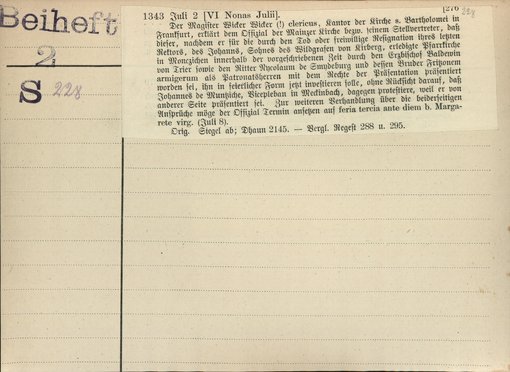 Beiheft
2
S 228
[276
228
1343 Juli 2 [VI Nonas Julii].
Der Magister Wicker Wicker (!) clericus, Kantor der Kirche s. Bartholomei in
Frankfurt, erklärt dem Offizial der Mainzer Kirche bezw. seinem Stellvertreter, daß
dieser, nachdem er für die durch den Tod oder freiwillige Resignation ihres letzten
Rektors, des Johanns, Sohnes des Wildgrafen von Kirberg, erledigte Pfarrkirche
in Monczichen innerhalb der vorgeschriebenen Zeit durch den Erzbischof Baldewin
von Trier sowie den Ritter Nycolaum de Smydeburg und dessen Bruder Friczonem
armigerum als Patronatsherren mit dem Rechte der Präsentation präsentiert
worden sei, ihn in feierlicher Form jetzt investieren solle, ohne Rücksicht darauf, daß
Johannes de Munsiche, Vicepleban in Meckinbach, dagegen protestiere, weil er von
anderer Seite präsentiert sei. Zur weiteren Verhandlung über die beiderseitigen
Ansprüche möge der Offizial Termin ansetzen auf feria tercia ante diem b. Marga-
rete virg. (Juli 8).
Orig. Siegel ab; Dhaun 2145. — Vergl. Regest 288 u. 295.